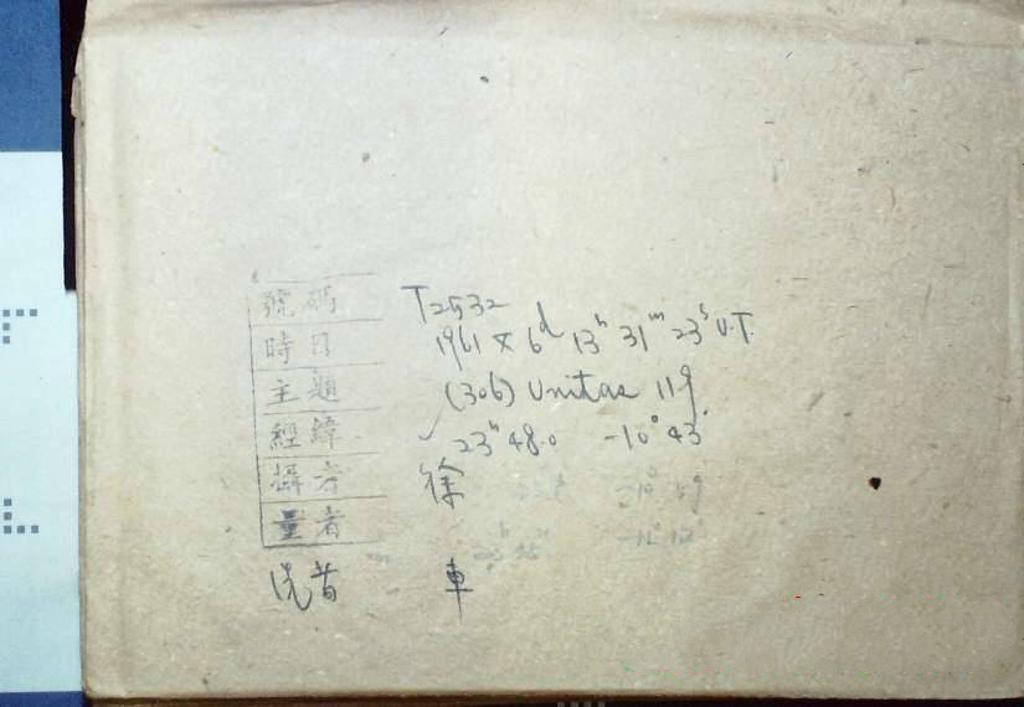 號碼 T2532
時日 1961 X 6ᵈ 13ʰ 31ᵐ 23ˢ U.T.
主題 (306) Unitas 11.9
經緯 ✓ 23ʰ 48.0 -10° 43'
攝者 徐
量者
洗者 車